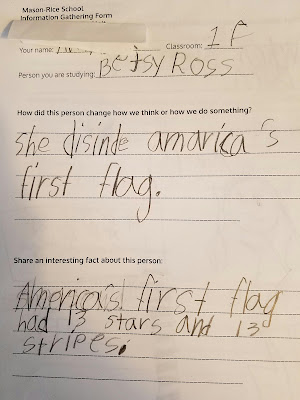 Mason-Rice School
Information Gathering Form
Your name: Classroom: 1F
Person you are studying: Betsy Ross
How did this person change how we think or how we do something?
she disinde amarica's
first flag.
Share an interesting fact about this person:
America's first flag
had 13 stars and 13
stripes.